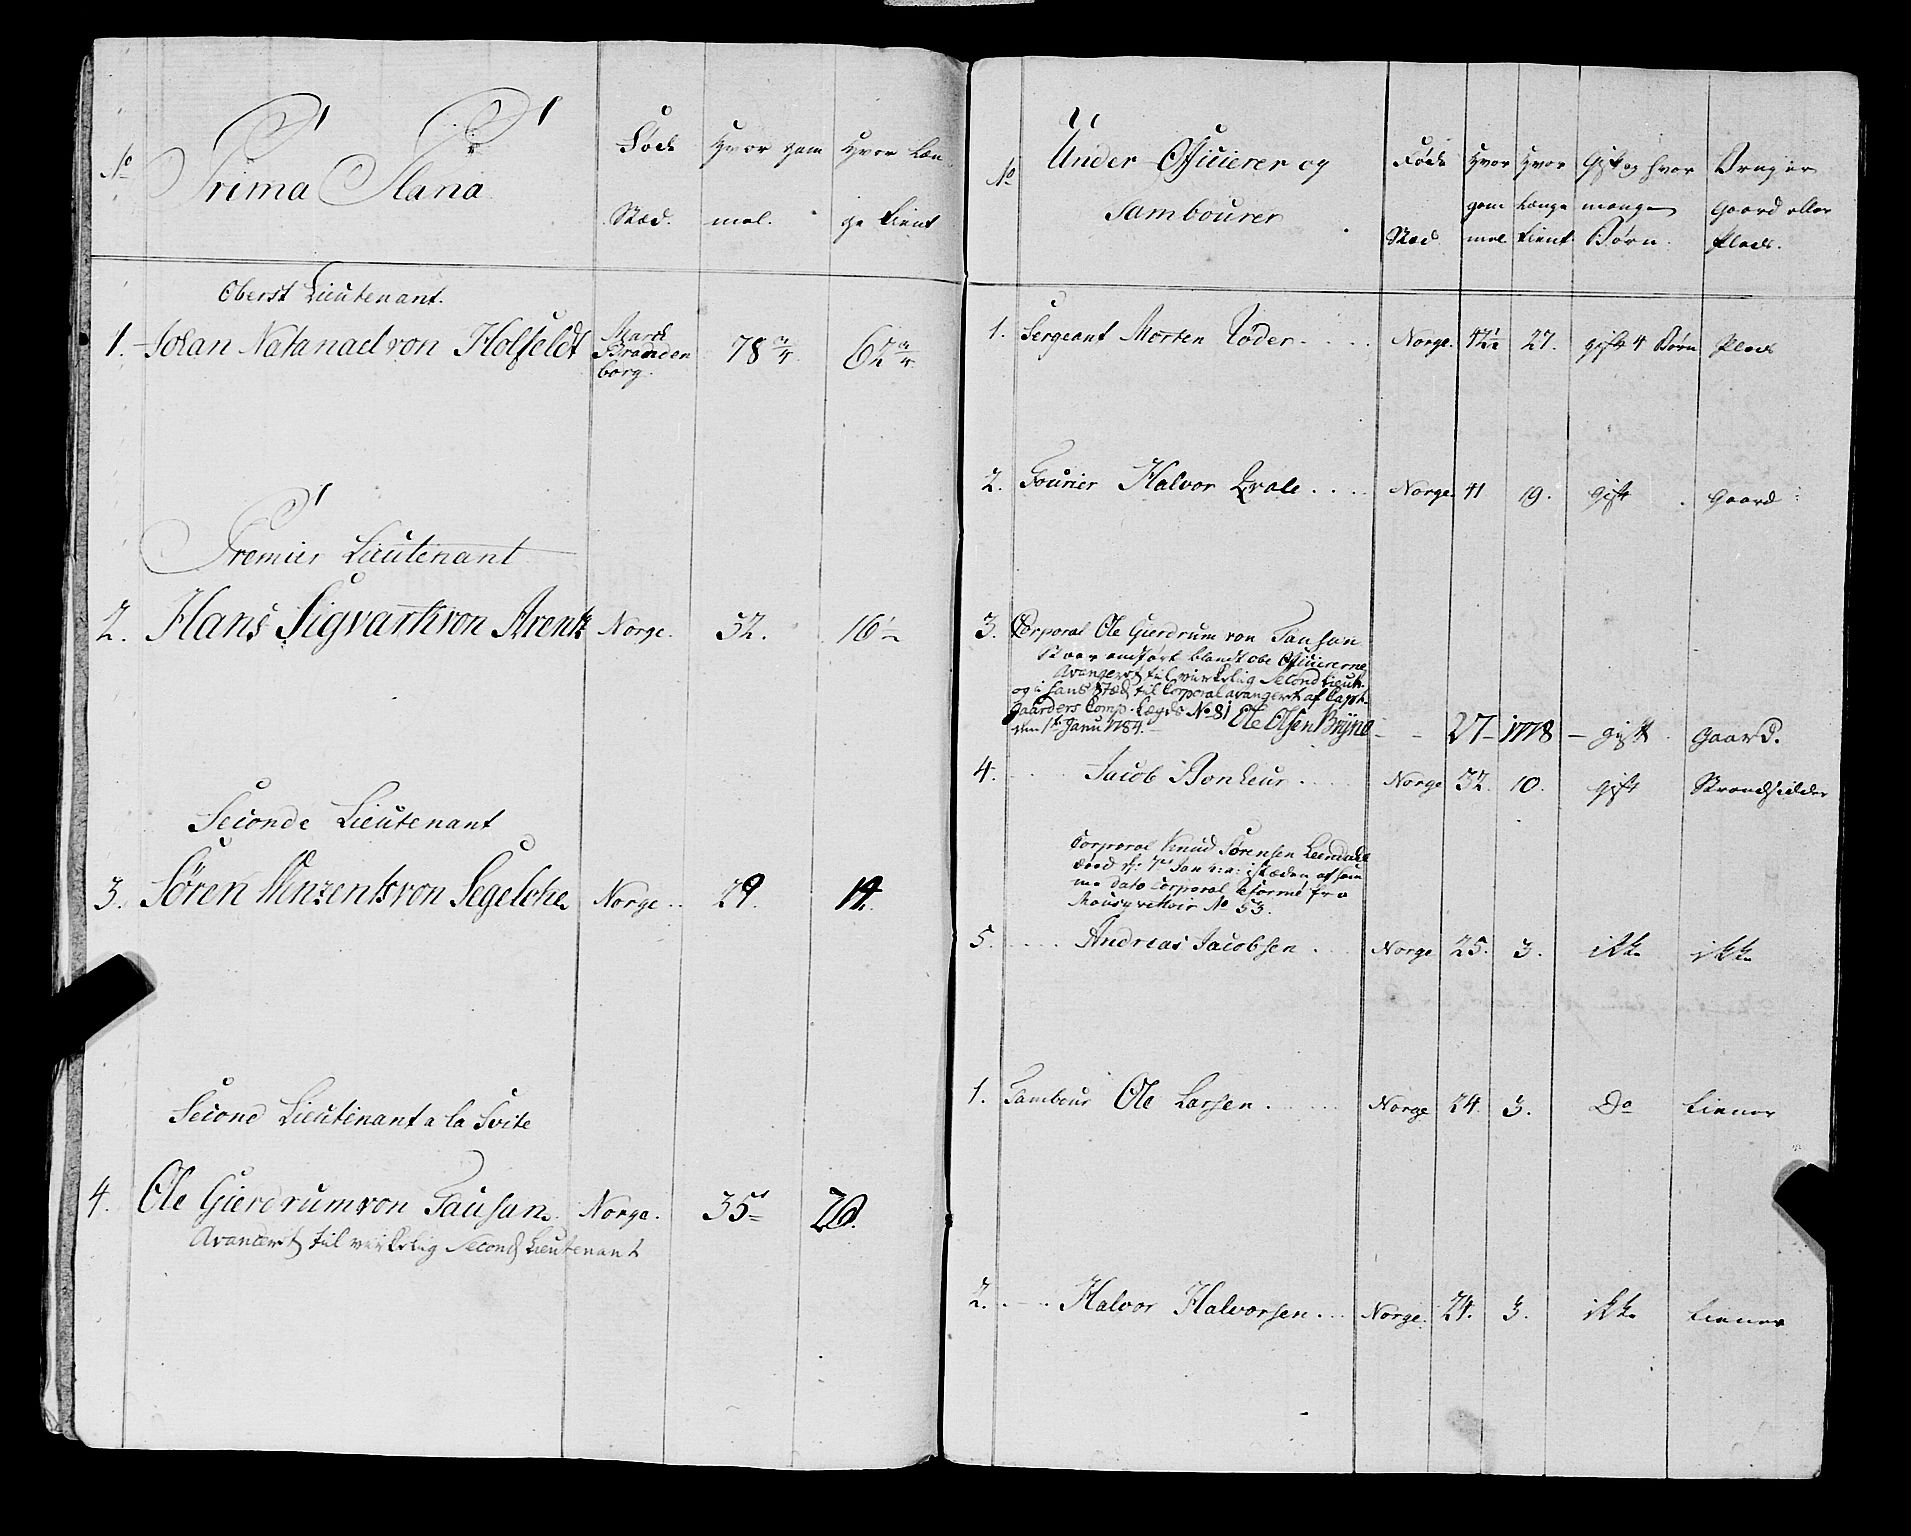 No Prima Plana Føde Stæd. Hvor gam mel. Hvor læn ge tient
Oberst Lieutenant.
1. Johan Natanael von Holfeldt Mark Branden borg. 78 3/4 62 3/4
Premier Lieutenant
2. Hans Sigvart von Arentz Norge. 32. 16 1/2
Seconde Lieutenant
3. Søren Winzents von Segelcke Norge. 29. 14.
Second Lieutenant a la Svite
4. Ole Gierdrum von Tausan Norge. 35 1/2 20.
Avanceret til virkelig Second Lieutenant
No Under Officierer og Tambourer Føde Stæd. Hvor gam mel Hvor længe tient Gift og hvor mange Børn. Bruger gaard eller Plads.
1. Sergeant Morten Röder Norge. 42 1/2 27. gift 4 Børn Plads
2. Fourier Halvor Qvale Norge. 41 19. gift gaard
3. Corporal Ole Gierdrum von Tausan
staar anført blandt obe Officiererne
Avangeret til virkelig Second Lieut.
og i hans Stæd til Corporal avangeret af Capt.
Gaarders Comp. Lægds No 81 Ole Olsen Bryne
den 1te Janu 1784. 27 1778 gift gaard.
4. Jacob Bonheur Norge 32. 10. gift Strandsidder
Corporal Knud Sørensen
død
me Dato Corporal Reformé fra
No 53.
5. Andreas Jacobsen Norge 25. 3. ikke ikke
1. Tambour Ole Larsen Norge 24. 3. Do tiener
2. Halvor Halvorsen Norge. 24. 3. ikke tiener